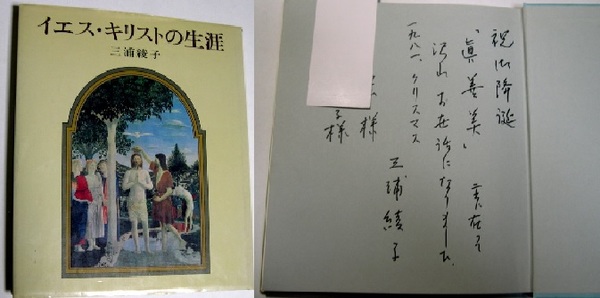 イエス・キリストの生涯
三浦綾子
祝御降誕
"眞善美"
沢山お世話になりました
一九八一、クリスマス
三浦綾子
様
子様